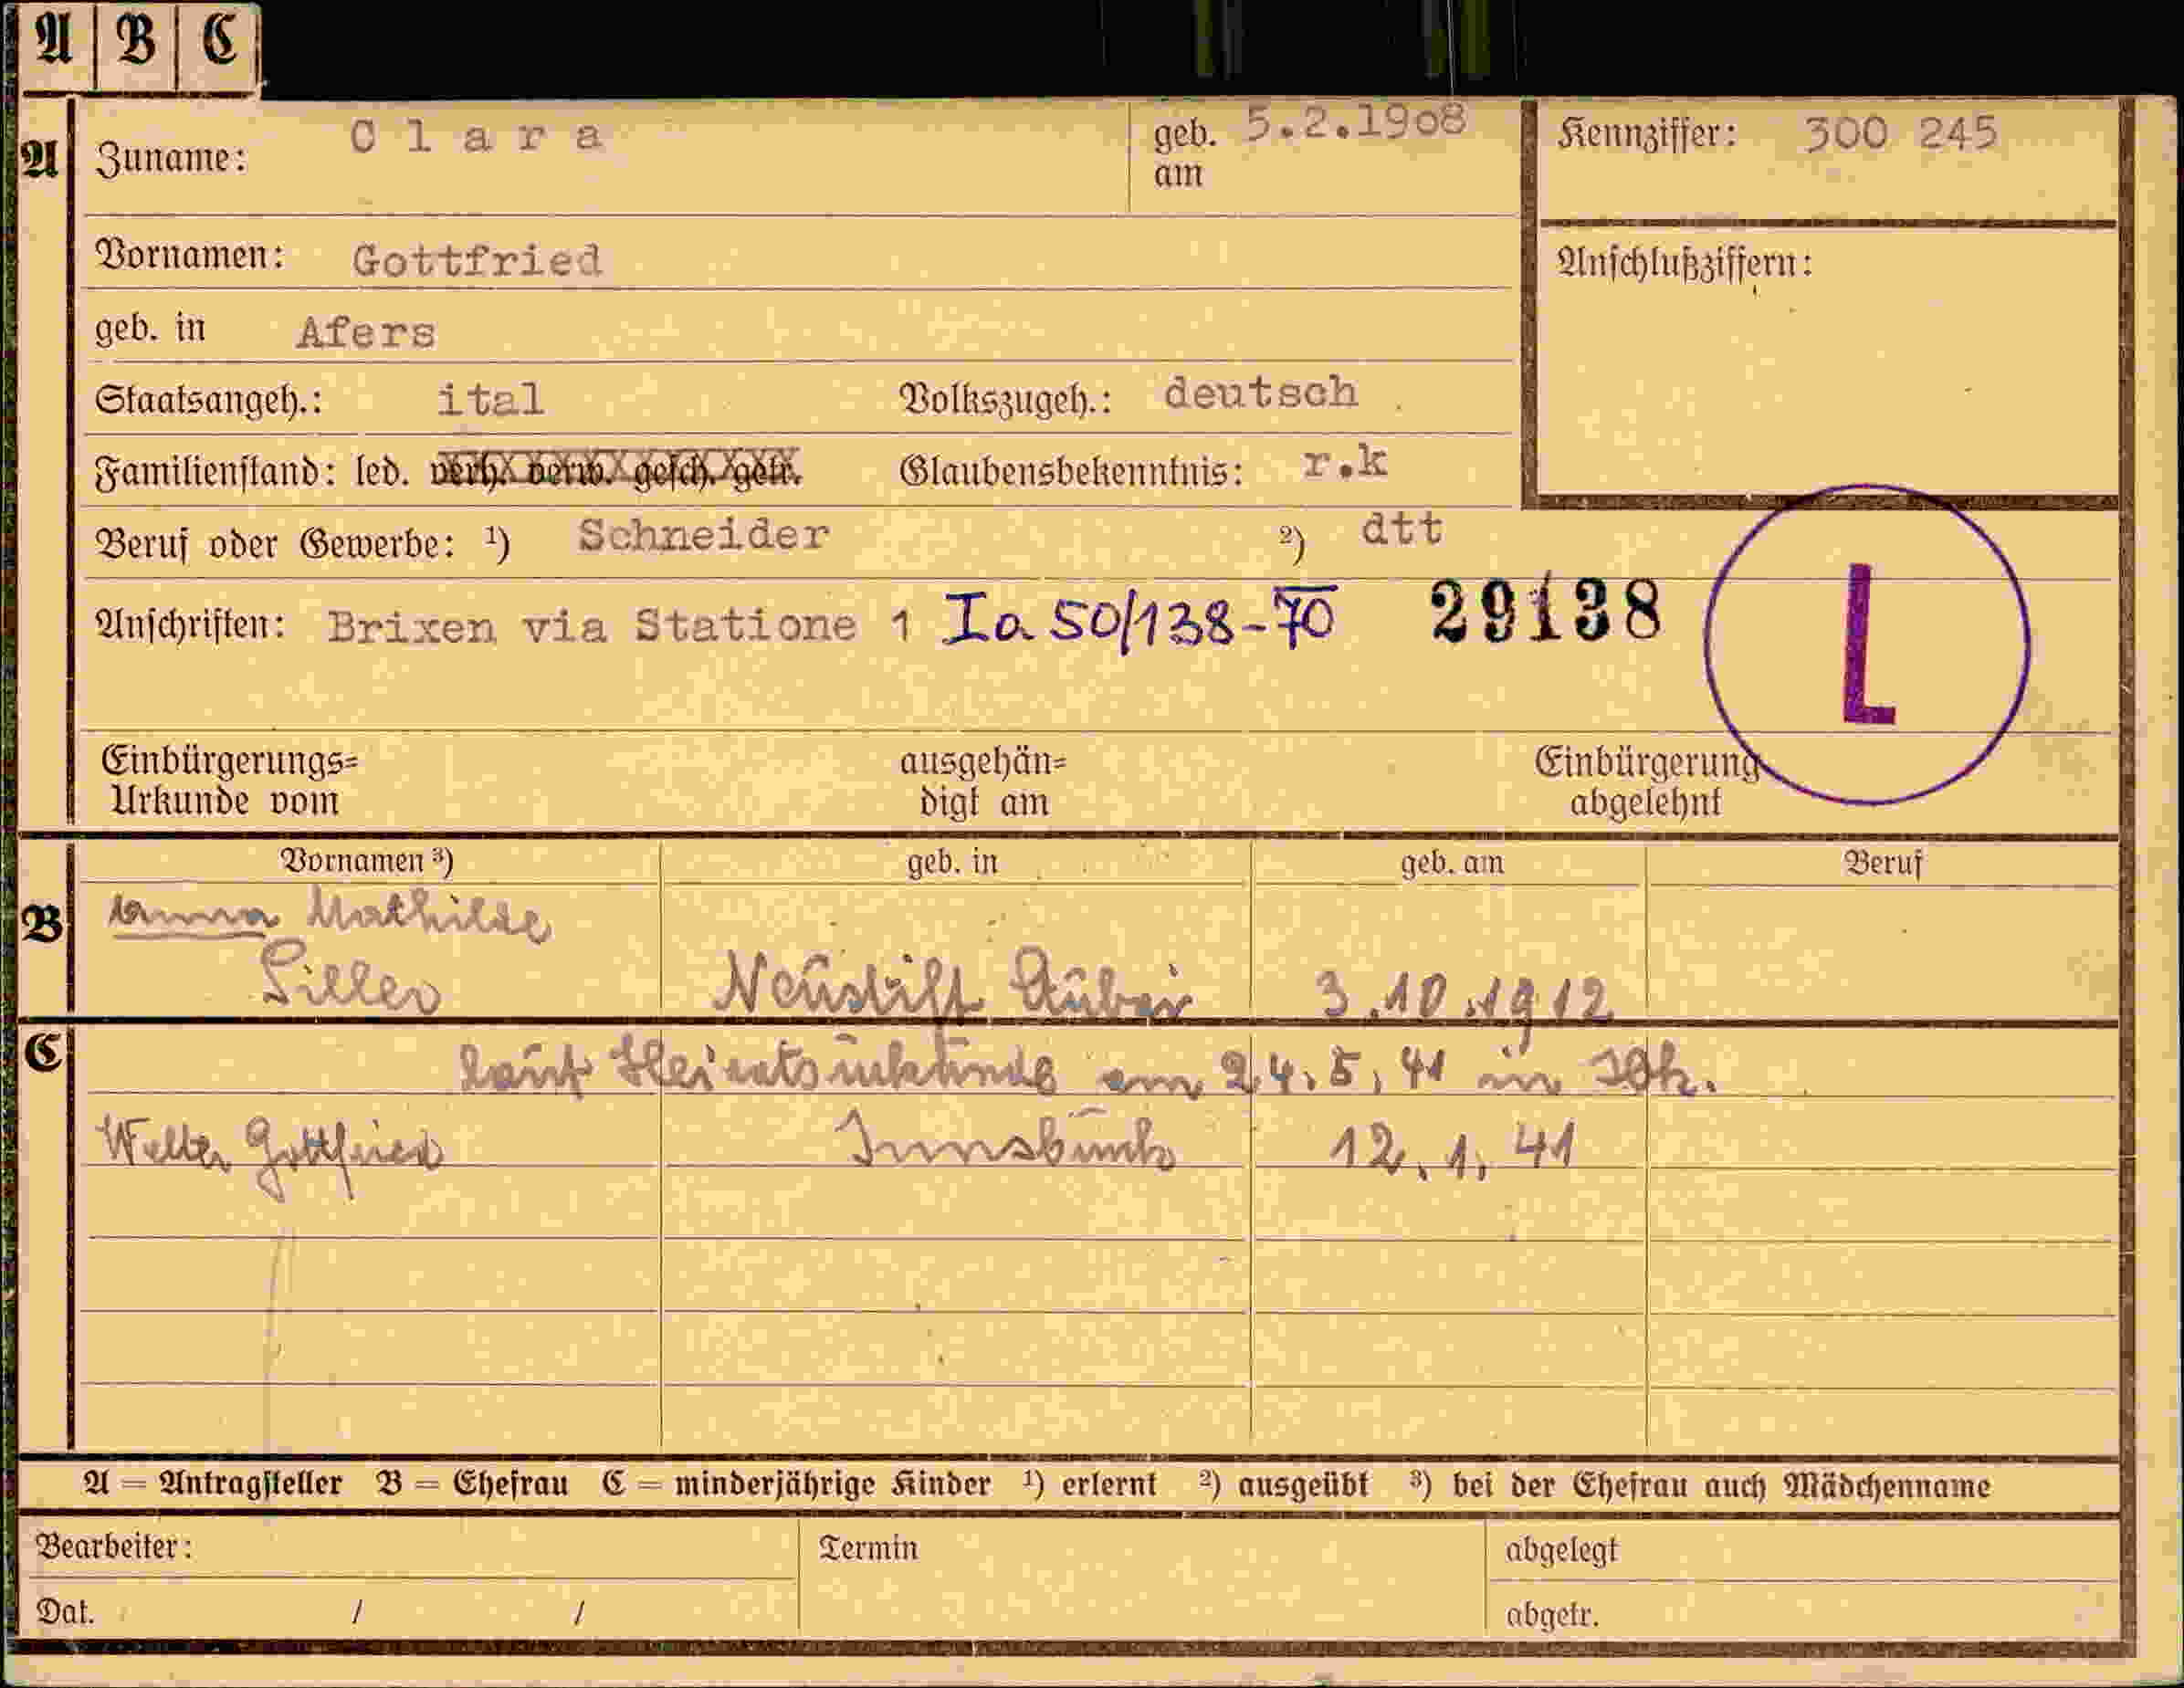 A B C
A Zuname: Clara geb. am 5.2.1908 Kennziffer: 300 245
Vornamen: Gottfried Anschlußziffern:
geb. in Afers
Staatsangeh.: ital Volkszugeh.: deutsch
Familienstand: led. verh. verw. gesch. getr. Glaubensbekenntnis: r.k
Beruf oder Gewerbe: ¹) Schneider ²) dtt
Anschriften: Brixen via Statione 1 Ia 50/138-70 29138 L
Einbürgerungs= ausgehän= Einbürgerung
Urkunde vom digt am abgelehnt
Vornamen ³) geb. in geb. am Beruf
B Anna Mathilde
Siller Neustift 3.10.1912
C laut Heiratsurkunde am 24.5.41 in Ibk.
Walter Gottfried Innsbruck 12.1.41
A = Antragsteller B = Ehefrau C = minderjährige Kinder ¹) erlernt ²) ausgeübt ³) bei der Ehefrau auch Mädchenname
Bearbeiter: Termin abgelegt
Dat. / / abgetr.